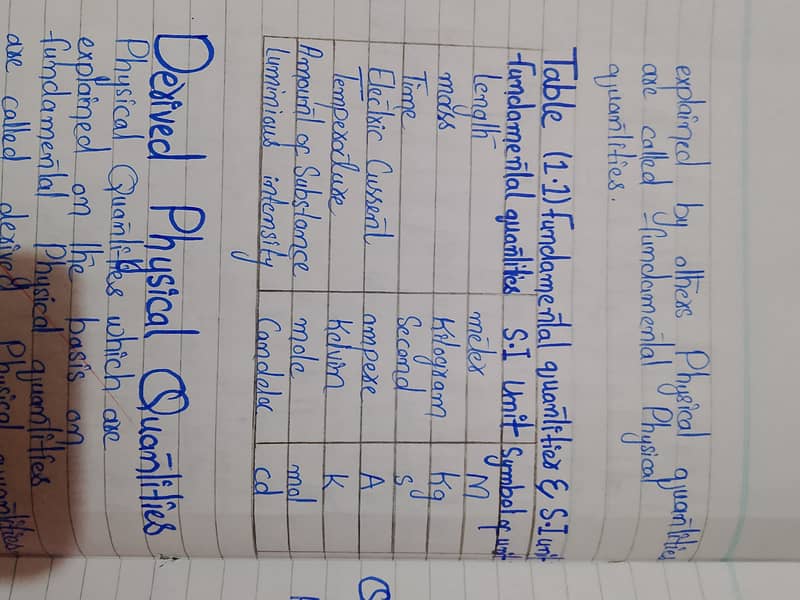 explained by others Physical quantities
are called fundamental Physical
quantities.
Table (1.1) fundamental quantities & S.I unit
fundamental quantities S.I Unit Symbol of unit
Length meter M
mass Kilogram Kg
Time Second S
Electric Current ampere A
Temperature Kelvin K
Amount of Substance mole mol
luminious intensity Candela cd
Derived Physical Quantities
Physical Quantities which are
explained on the basis on
fundamental Physical quantities
are called derived Physical quantities